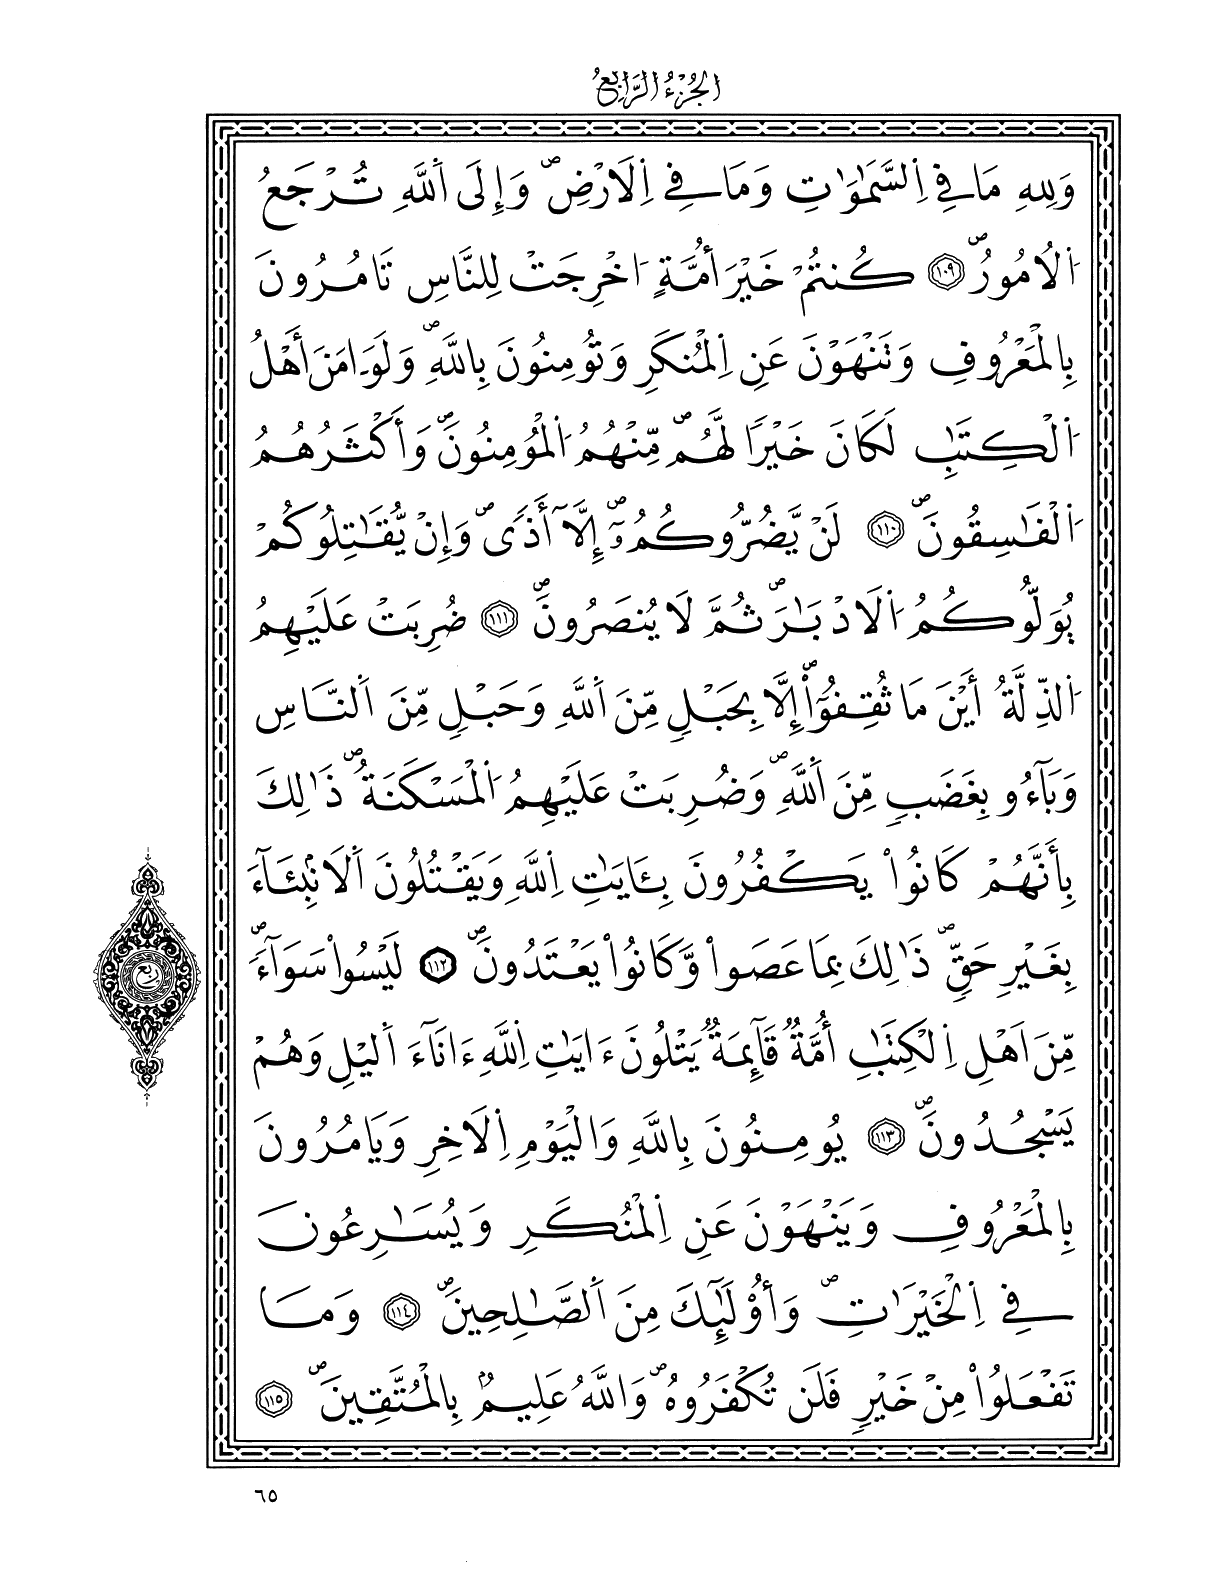 الجُزْءُ الرَّابِعُ
وَلِلهِ مَا فِے اِ۬لسَّمَٰوَٰتِ وَمَا فِے اِ۬لَارْضِۖ وَإِلَى اَ۬للَّهِ تُرْجَعُ
اُ۬لُامُورُۖ ١٠٩ كُنتُمْ خَيْرَ أُمَّةٍ ا۟خْرِجَتْ لِلنَّاسِ تَامُرُونَ
بِالْمَعْرُوفِ وَتَنْهَوْنَ عَنِ اِ۬لْمُنكَرِ وَتُومِنُونَ بِاللَّهِۖ وَلَوَ اٰمَنَ أَهْلُ
اُ۬لْكِتَٰبِ لَكَانَ خَيْراٗ لَّهُمۖ مِّنْهُمُ اُ۬لْمُؤْمِنُونَۖ وَأَكْثَرُهُمُ
اُ۬لْفَٰسِقُونَۖ ١١٠ لَنْ يَّضُرُّوكُمُۥٓ إِلَّآ أَذىٗۖ وَإِنْ يُّقَٰتِلُوكُمْ
يُوَلُّوكُمُ اُ۬لَادْبَٰرَۖ ثُمَّ لَا يُنصَرُونَۖ ١١١ ضُرِبَتْ عَلَيْهِمُ
اُ۬لذِّلَّةُ أَيْنَ مَا ثُقِفُوٓاْۖ إِلَّا بِحَبْلٖ مِّنَ اَ۬للَّهِ وَحَبْلٖ مِّنَ اَ۬لنَّاسِ
وَبَآءُو بِغَضَبٖ مِّنَ اَ۬للَّهِۖ وَضُرِبَتْ عَلَيْهِمُ اُ۬لْمَسْكَنَةُۖ ذَٰلِكَ
بِأَنَّهُمْ كَانُواْ يَكْفُرُونَ بِـَٔايَٰتِ اِ۬للَّهِ وَيَقْتُلُونَ اَ۬لَانۢبِئَآءَ
بِغَيْرِ حَقّٖۖ ذَٰلِكَ بِمَا عَصَواْ وَّكَانُواْ يَعْتَدُونَۖ ١١٢ لَيْسُواْ سَوَآءٗۖ
مِّنَ اَهْلِ اِ۬لْكِتَٰبِ أُمَّةٞ قَآئِمَةٞ يَتْلُونَ ءَايَٰتِ اِ۬للَّهِ ءَانَآءَ اَ۬ليْلِ وَهُمْ
يَسْجُدُونَۖ ١١٣ يُومِنُونَ بِاللَّهِ وَالْيَوْمِ اِ۬لَاخِرِ وَيَامُرُونَ
بِالْمَعْرُوفِ وَيَنْهَوْنَ عَنِ اِ۬لْمُنْكَرِ وَيُسَٰرِعُونَ
فِے اِ۬لْخَيْرَٰتِۖ وَأُوْلَٰٓئِكَ مِنَ اَ۬لصَّٰلِحِينَۖ ١١٤ وَمَا
تَفْعَلُواْ مِنْ خَيْرٖ فَلَن تُكْفَرُوهُۖ وَاللَّهُ عَلِيمُۢ بِالْمُتَّقِينَۖ ١١٥
ربع
٦٥